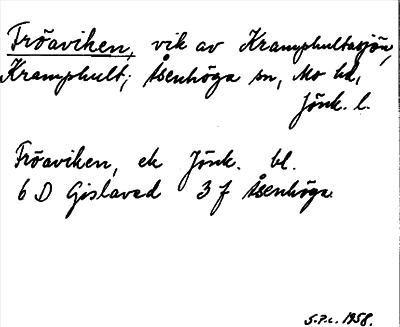 Fröaviken, vik av Kramphultasjön,
Kramphult; Åsenhöga sn, Mo hd,
Jönk. l.
Fröaviken, ek Jönk. bl.
6 D Gislaved 3 f Åsenhöga.
S.P.L. 1958.